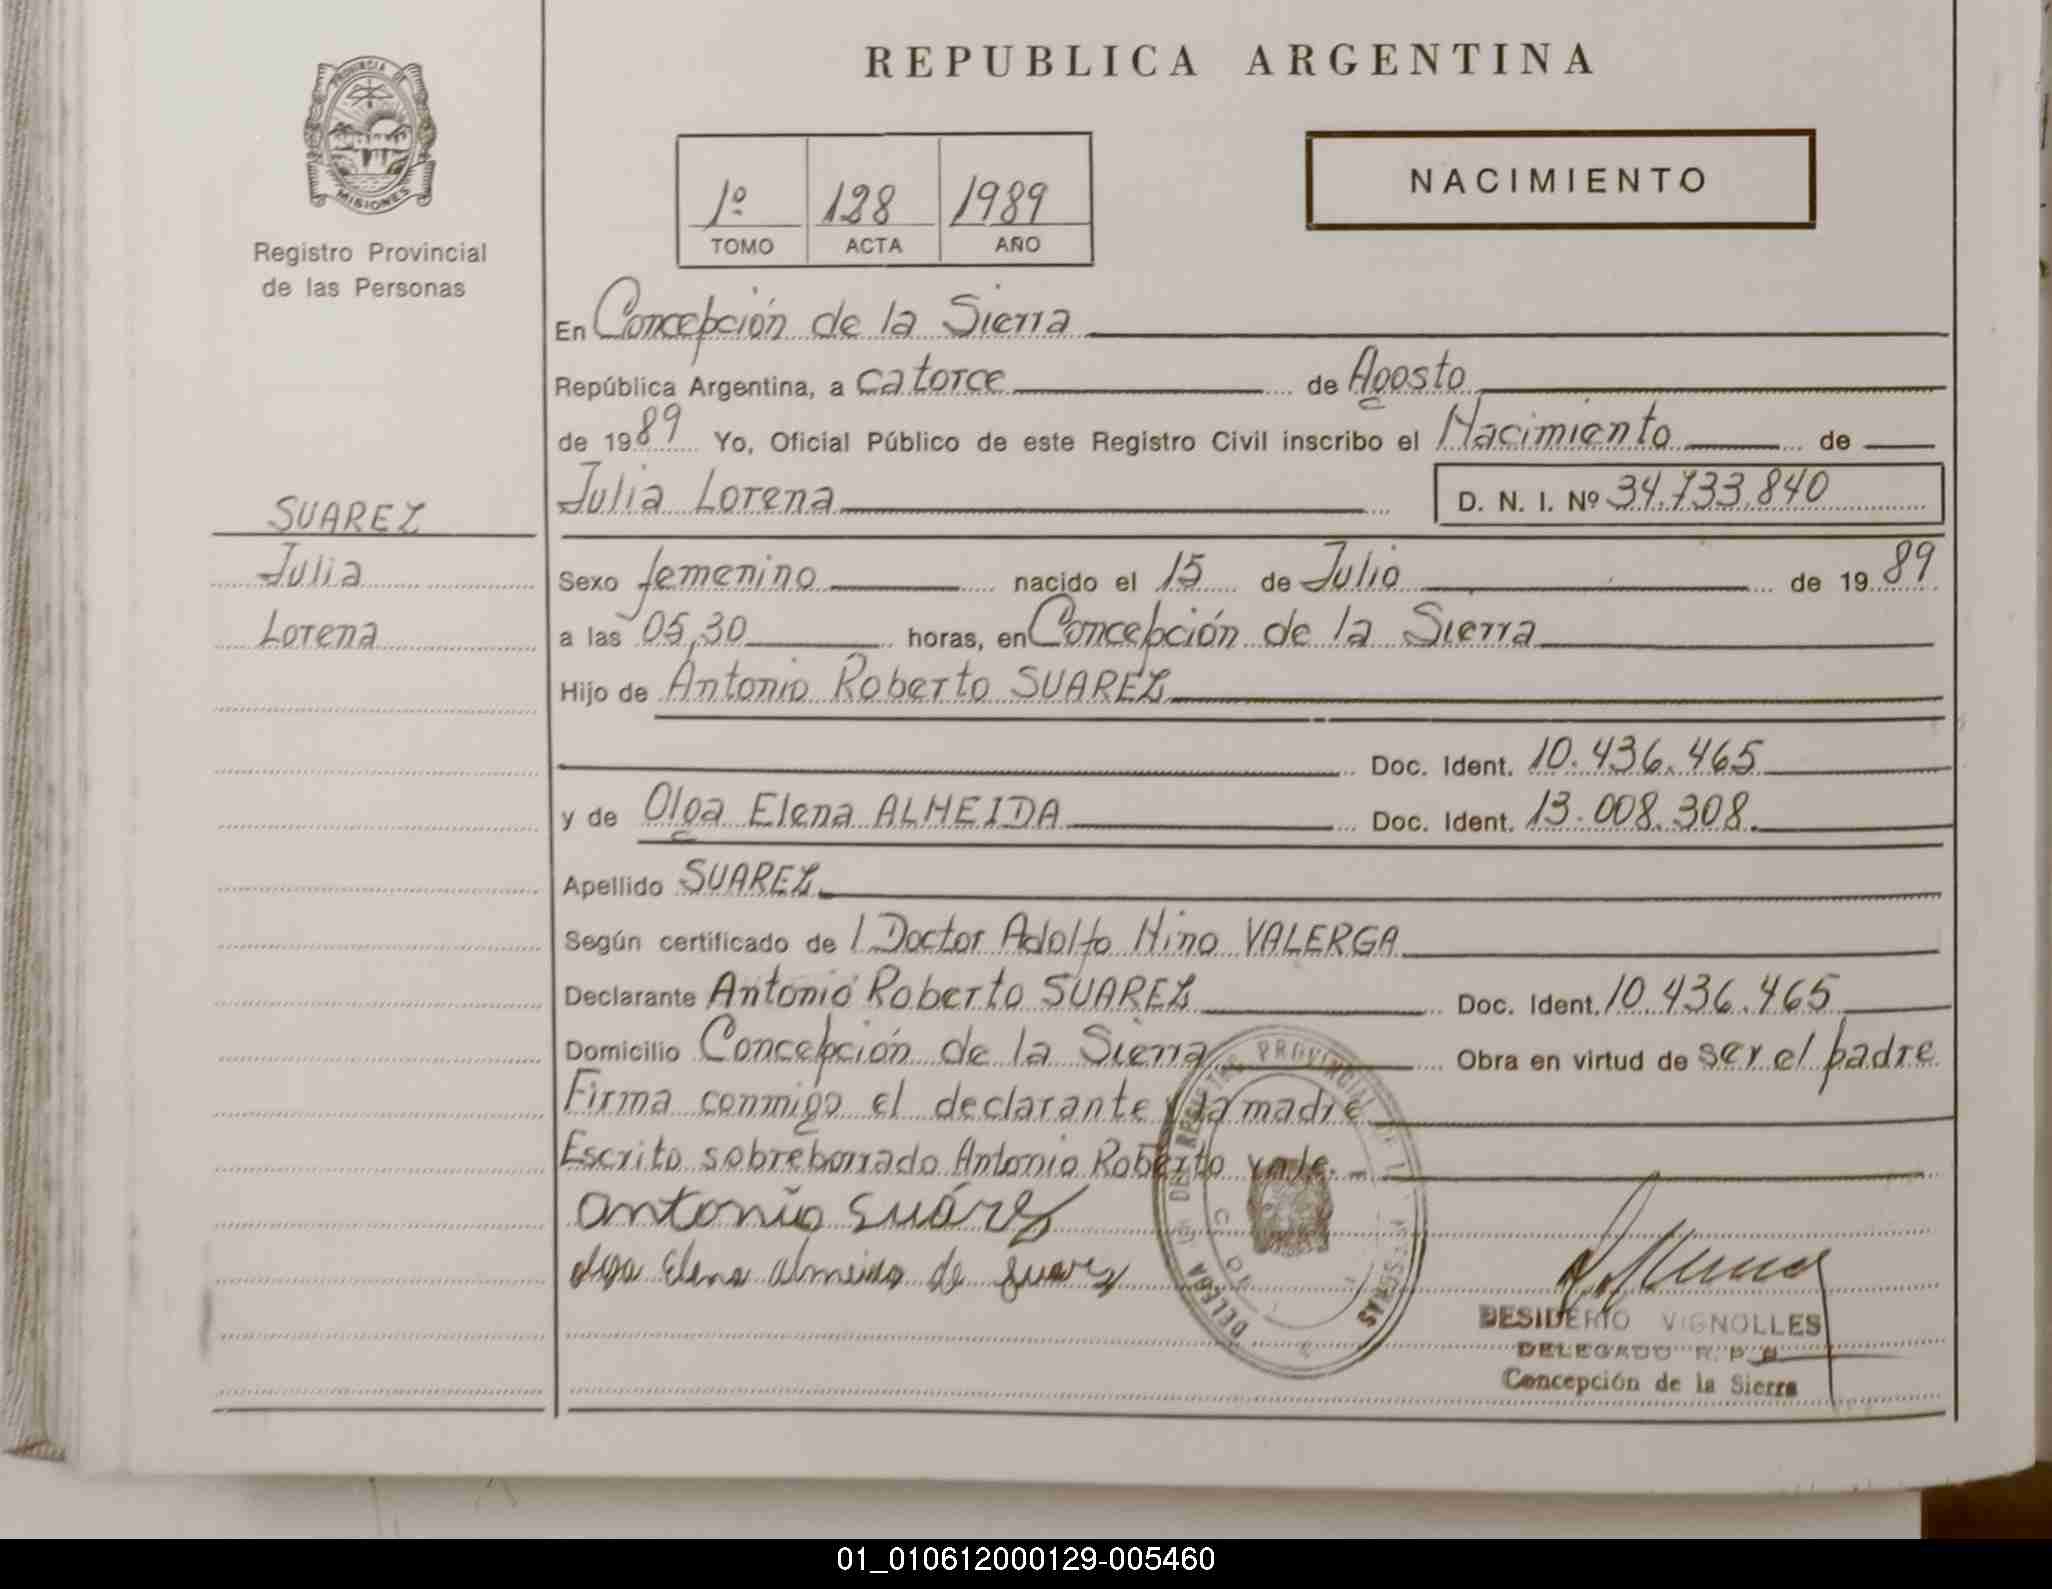 REPUBLICA ARGENTINA
PROVINCIA DE
MISIONES
Registro Provincial
de las Personas
1º 128 1989
TOMO ACTA AÑO
NACIMIENTO
En Concepción de la Sierra
República Argentina, a catorce de Agosto
de 1989 Yo, Oficial Público de este Registro Civil inscribo el Nacimiento de
Julia Lorena D. N. I. Nº 34.733.840
SUAREZ
Julia
Lorena
Sexo femenino nacido el 15 de Julio de 1989
a las 05,30 horas, en Concepción de la Sierra
Hijo de Antonio Roberto SUAREZ
Doc. Ident. 10.436.465
y de Olga Elena ALMEIDA Doc. Ident. 13.008.308.
Apellido SUAREZ
Según certificado de l Doctor Adolfo Nino VALERGA
Declarante Antonio Roberto SUAREZ Doc. Ident. 10.436.465
Domicilio Concepción de la Sierra Obra en virtud de ser el padre
Firma conmigo el declarante y la madre
Escrito sobreborrado Antonio Roberto vale.
Antonio Suárez
olga Elena almeida de Suarez
DESIDERIO VIGNOLLES
DELEGADO R. P. P.
Concepción de la Sierra
01_010612000129-005460